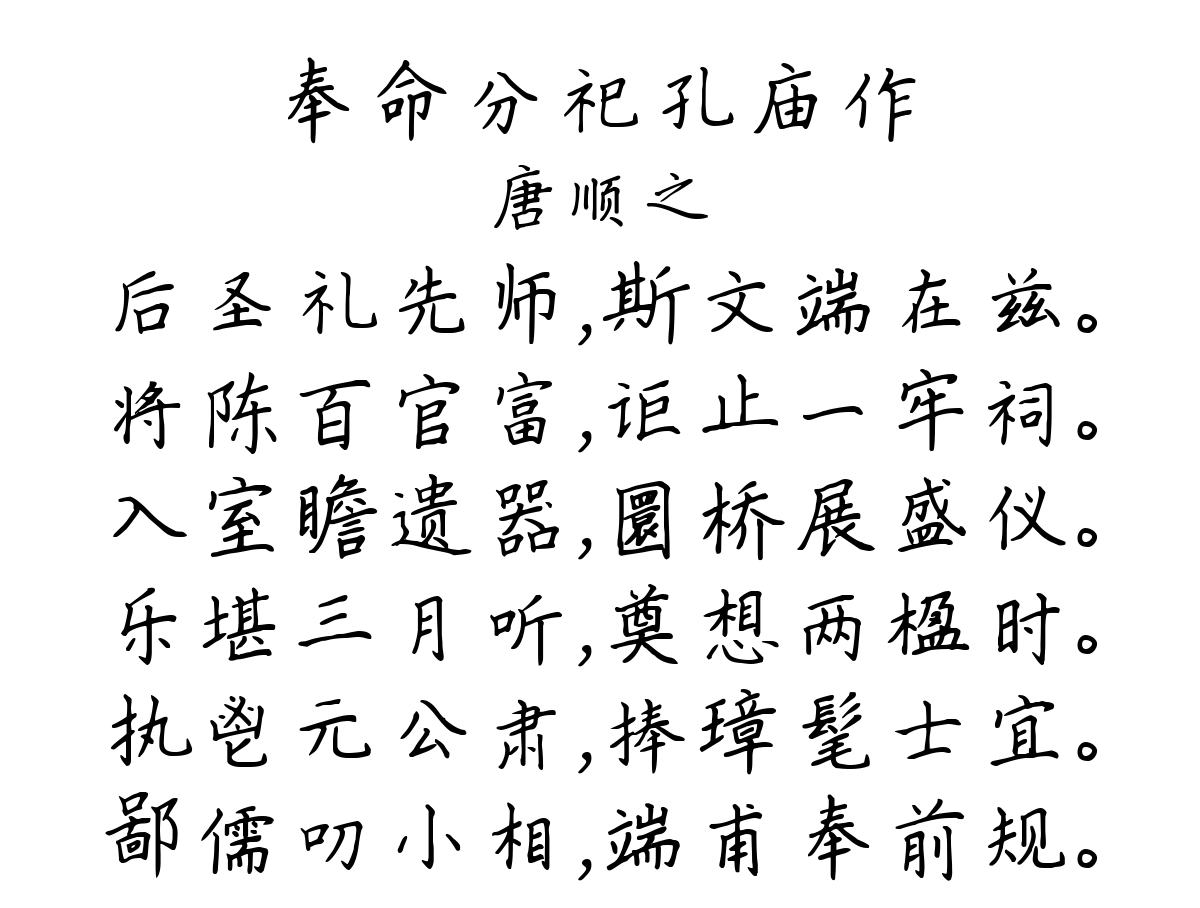 奉命分祀孔庙作
唐顺之
后圣礼先师,斯文端在兹。
将陈百官富,讵止一牢祠。
入室瞻遗器,圜桥展盛仪。
乐堪三月听,奠想两楹时。
执鬯元公肃,捧璋髦士宜。
鄙儒叨小相,端甫奉前规。